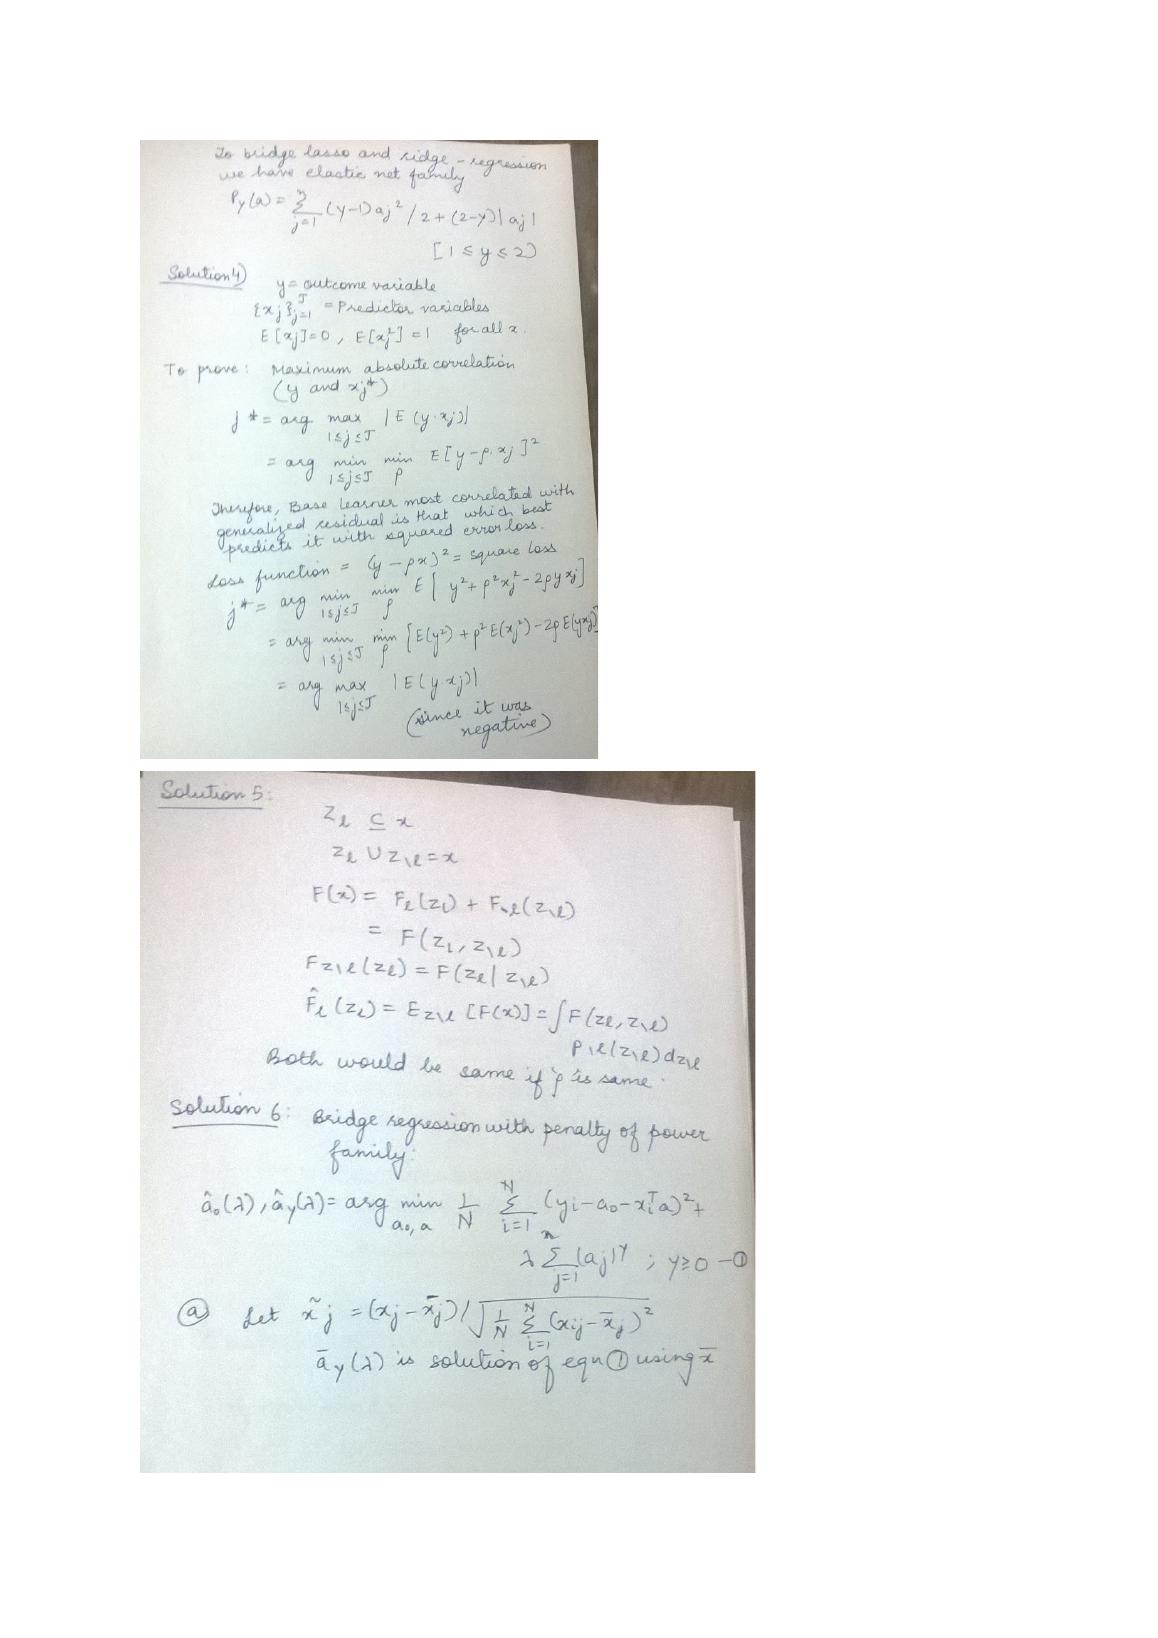 To bridge lasso and ridge - regression
we have elastic net family
Pγ(a) = Σ_{j=1}^{n} (γ-1) aj² / 2 + (2-γ) | aj |
[1 ≤ γ ≤ 2)
Solution 4)
y = outcome variable
{xj}_{j=1}^{J} = Predictor variables
E[xj]=0, E[xj²] = 1 for all x.
To prove: Maximum absolute correlation
(y and xj*)
j* = arg max_{1≤j≤J} |E(y·xj)|
= arg min_{1≤j≤J} min_ρ E[y-ρ·xj]²
Therefore, Base learner most correlated with
generalized residual is that which best
predicts it with squared error loss.
Loss function = (y - ρx)² = square loss
j* = arg min_{1≤j≤J} min_ρ E[y² + ρ²xj² - 2ρy xj]
= arg min_{1≤j≤J} min_ρ [E(y²) + ρ²E(xj²) - 2ρE(yxj)]
= arg max_{1≤j≤J} |E(y·xj)|
(since it was
negative)
Solution 5:
z_l ⊆ x
z_l ∪ z_\l = x
F(x) = F_l(z_l) + F_\l(z_\l)
= F(z_l, z_\l)
F_{z\l}(z_l) = F(z_l | z_\l)
F̂_l(z_l) = E_{z\l} [F(x)] = ∫F(z_l, z_\l)
p_\l(z_\l) dz_\l
Both would be same if ρ is same.
Solution 6: Bridge regression with penalty of power
family:
â₀(λ), âγ(λ) = arg min_{a₀,a} 1/N Σ_{i=1}^{N} (yi - a₀ - xiᵀa)² +
λ Σ_{j=1}^{n} |aj|^γ ; γ≥0 -①
ⓐ Let x̃j = (xj - x̄j) / √(1/N Σ_{i=1}^{N} (xij - x̄j)²)
āγ(λ) is solution of eqn ① using x̄